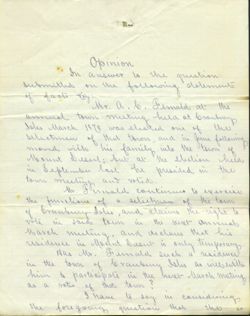 Opinion
In answer to the question
submitted on the following statement
of facts by.
Mr. A. C. Fernald at the
annual town meeting held at Cranberry
Isles March 1878 was elected one of the
selectmen of that town and in June following
moved with his family into the town of
Mount Desert; but at the election held
in September last he presided in the
town meeting and voted.
Mr. Fernald continues to exercise
the functions of a selectman of the town
of Cranberry Isles, and claims the right to
vote in said town at the next annual
March meeting, and declares that his
residence in Mount Desert is only temporary.
Has Mr. Fernald such a residence
in the town of Cranberry Isles as will entitle
him to participate in the next March meeting
as a voter of that town?
I have to say in considering
the foregoing question that the